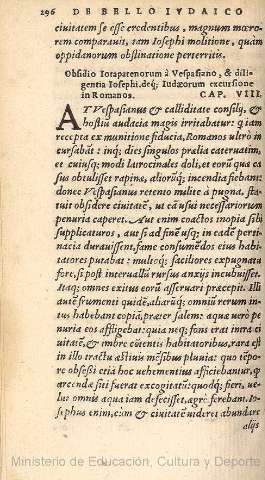 296 DE BELLO IVDAICO
ciuitatem se esse credentibus, magnum mœro-
rem comparauit, tam Iosephi molitione, quàm
oppidanorum obstinatione perterritis.
Obsidio Iotaparenorum à Vespasiano, & dili-
gentia Iosephi, deq́; Iudæorum excursione
in Romanos. CAP. VIII.
AT Vespasianus & calliditate consilij, &
hostiũ audacia magis irritabatur: q́ iam
recepta ex munitione fiducia, Romanos vltrò in
cursabãt: inq́; dies singulos prælia cateruatim,
et cuiusq́; modi latrocinales doli, et eorũ quæ ca
sus obtulisset rapina, aliarũq́; incendia fiebant:
donec Vespasianus retento milite à pugna, sta-
tuit obsidere ciuitatẽ, ut ea usui necessariorum
penuria caperet. Aut enim coactos inopia sibi
supplicaturos, aut si ad finẽ usq́; in eadẽ perti-
nacia durauissent, fame consumẽdos eius habi-
tatores putabat: multoq́; faciliores expugnatu
fore, si post interuallũ rursus anxijs incubuisset.
Itaq́; omnes exitus eorũ asseruari præcepit. Illi
autẽ frumenti quidẽ, aliarũq́; omniũ rerum in-
tus habebant copiã, præter salem: aquæ verò pe
nuria eos affligebat: quia neq́; fons erat intra ci
uitatẽ, & imbre cõtentis habitatoribus, rara est
in illo tractu æstiuis mẽsibus pluuia: quo tẽpo-
re obsessi etiã hoc uehementius afficiebantur, q́
arcendæ siti fuerat excogitatũ: quodq́; fieri, ve-
lut omnis aqua iam defecisset, ægrè ferebant. Io-
sephus enim, cùm & ciuitatẽ uideret abundare
alijs
Ministerio de Educación, Cultura y Deporte